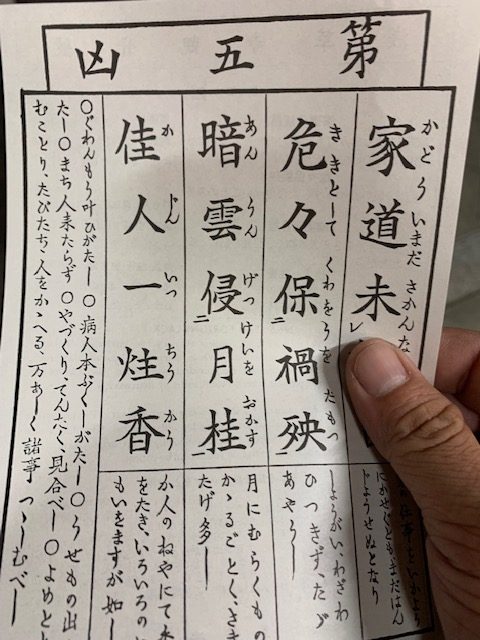 第五凶
家道未
かどういまださかんな
危々保禍殃
ききとしてくわをうをたもつ
二 一
暗雲侵月桂
あんうんげっけいをおかす
二 一
佳人一炷香
かじんいっちうかう
にかせげどもまだはん
じようせぬとなり
しようがい、わざわ
ひつきずたゞ
あやうし
月にむらくもの
かゝるごとく、さま
たげ多し
か人のねやにて香
をたき、いろいろの
もいをますが如し
○ぐわんもう叶ひがたし ○病人本ぶくしがたし ○うせもの出
たし ○まち人来たらず ○やづくり、てんたく、見合べし ○よめとり
むことり、たびたち、人をかゝへる、万あしく 諸事 つゝしむべし